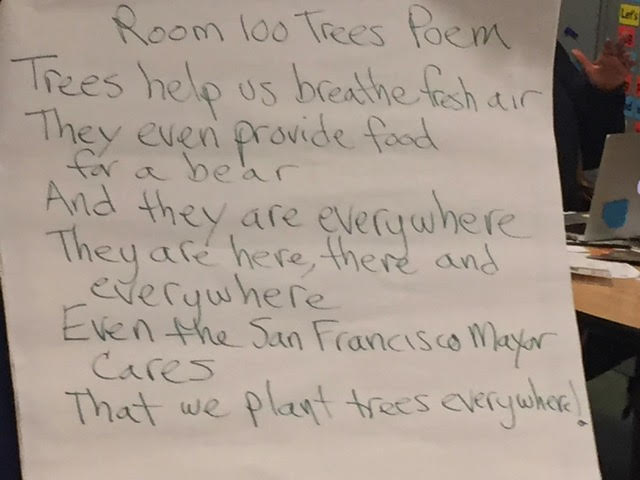 Room 100 Trees Poem
Trees help us breathe fresh air
They even provide food
for a bear
And they are everywhere
They are here, there and
everywhere
Even the San Francisco Mayor
Cares
That we plant trees everywhere!
Let's